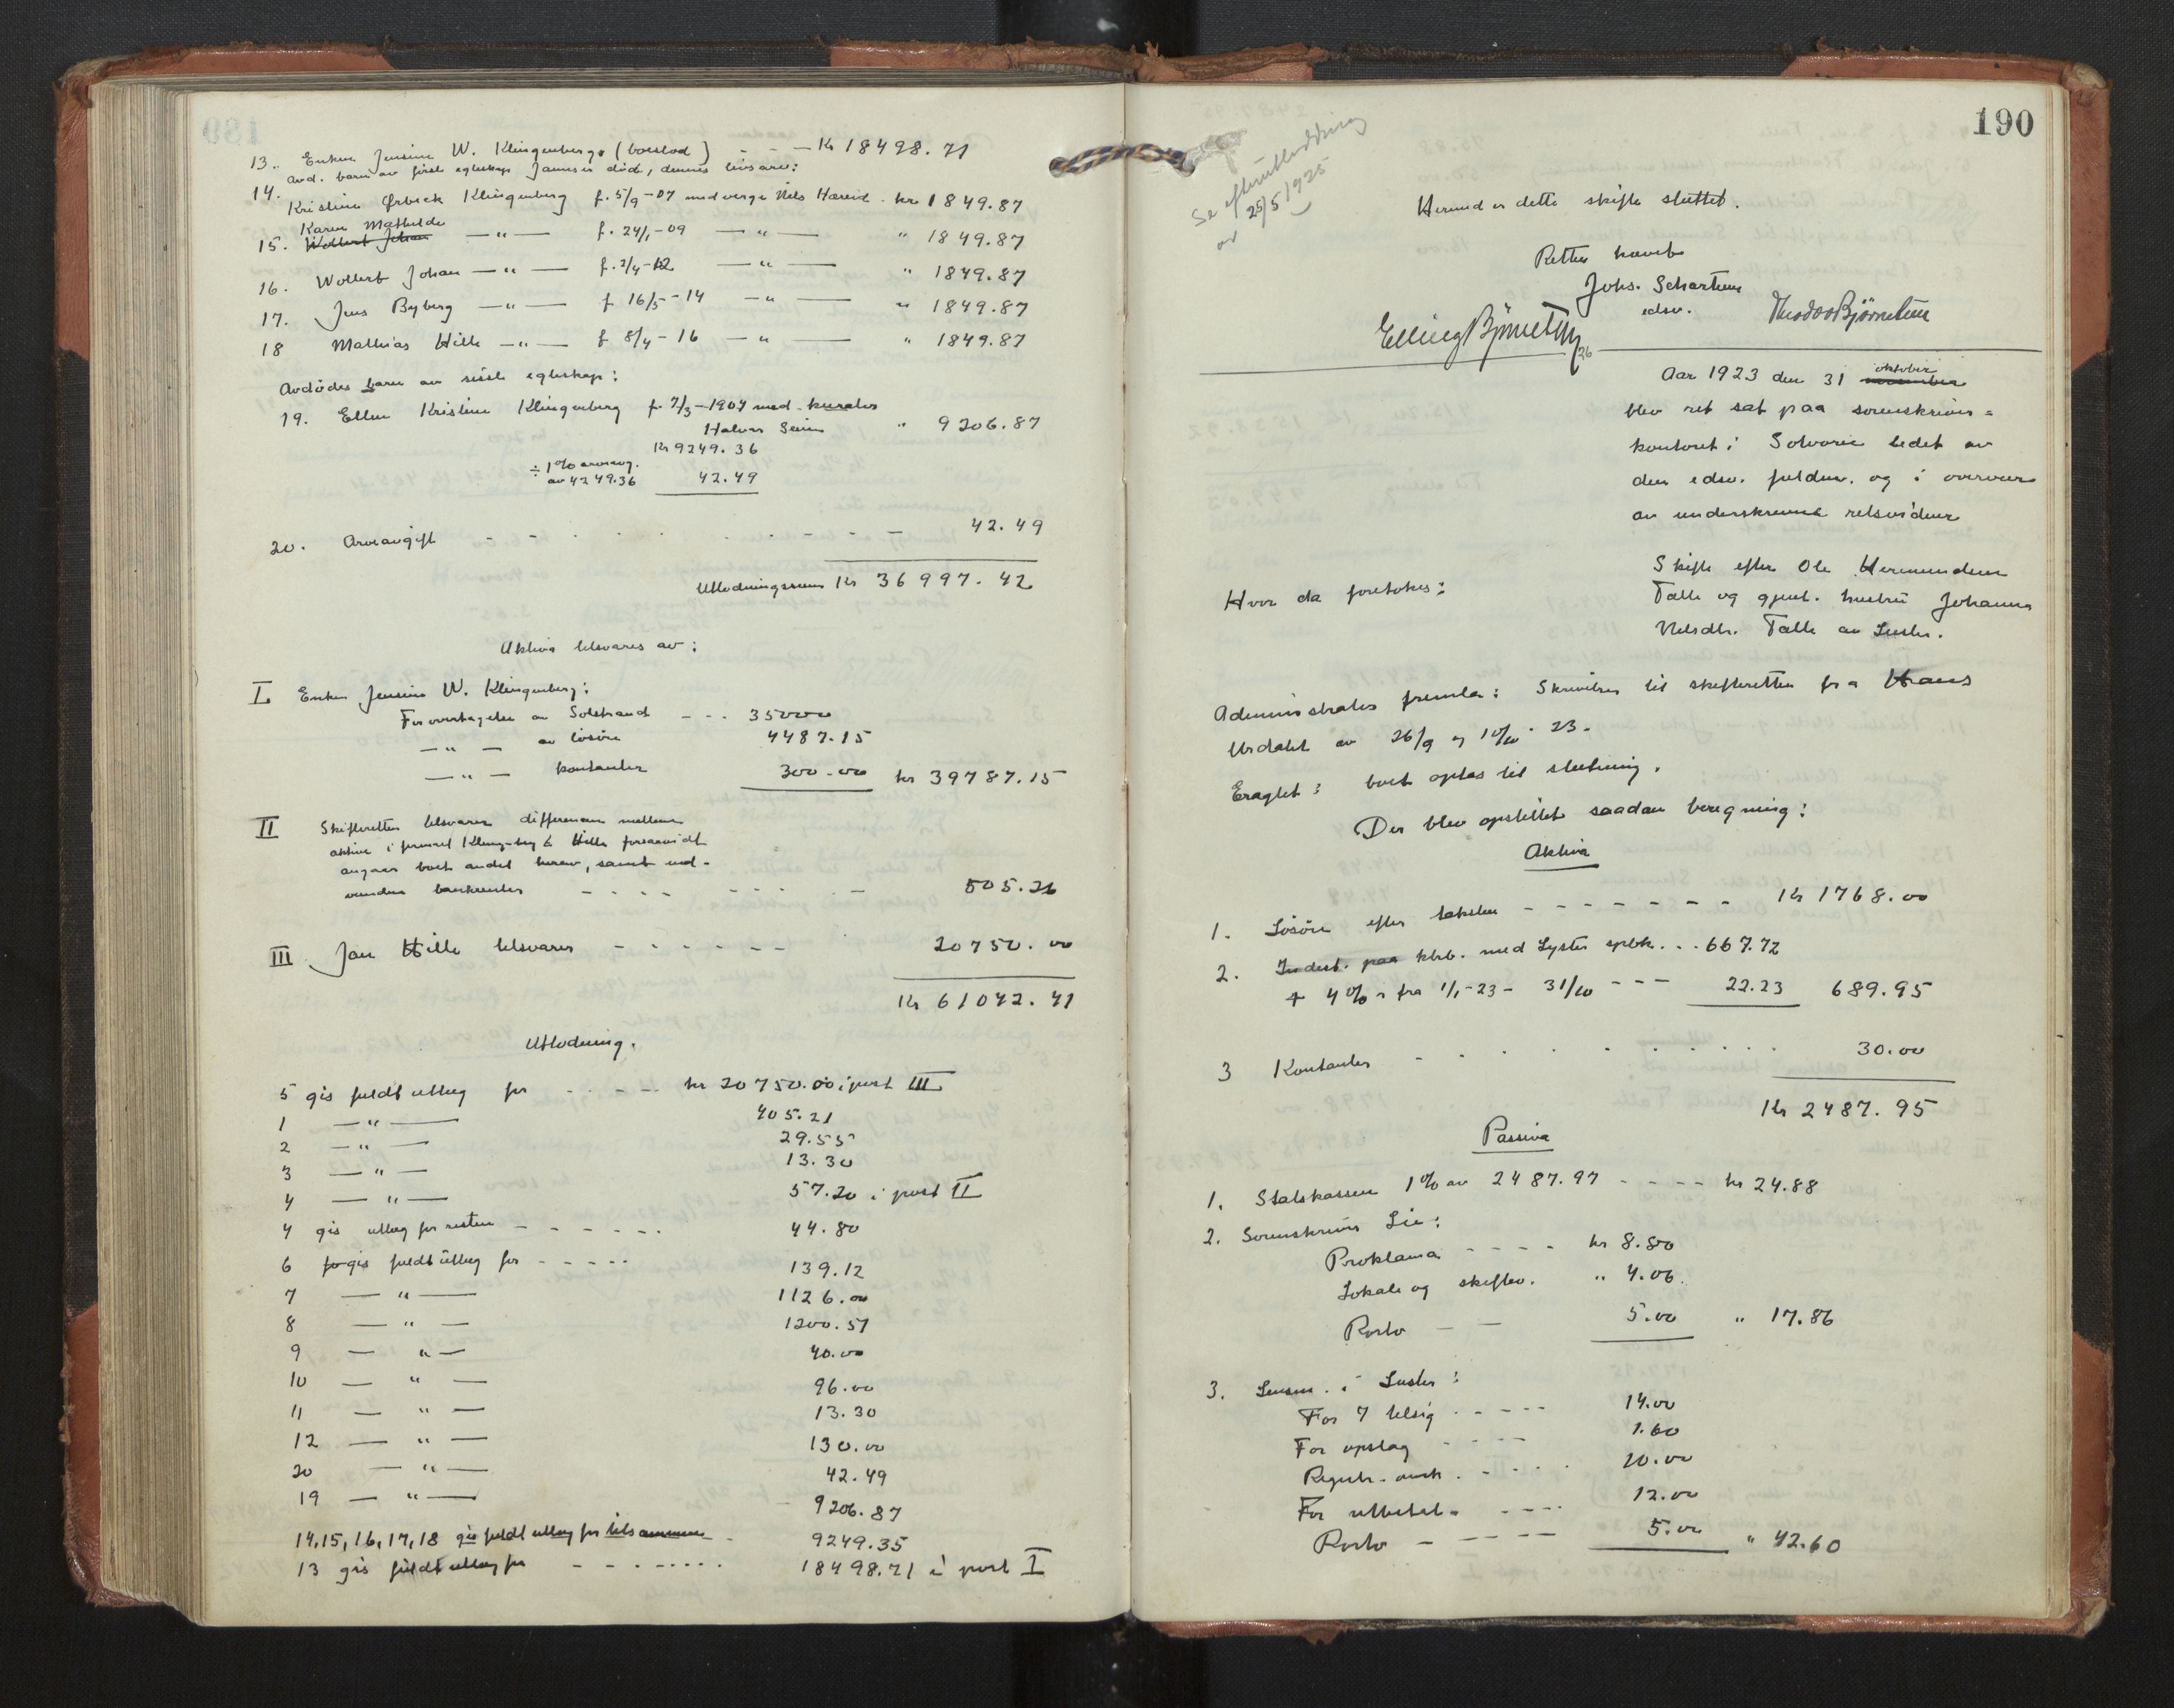 13. Enken Jensine W. Klingenberg (boeslod) - - - Kr 18498.71
Avd. barn av første egteskap Jannes er død, dennes livsarv:
14. Kristine Ørbeck Klingenberg f. 5/9-07 med verge Nils Hareid . kr 1849.87
Karen Mathilde
15. Wollert Johan —"— f. 24/1-09 —"— " 1849.87
16. Wollert Johan —"— f. 2/4-12 —"— " 1849.87
17. Jens Byberg —"— f 16/5-14 —"— " 1849.87
18 Mathias Hille —"— f 8/4-16 —"— " 1849.87
Avdødes barn av siste egteskap:
19. Ellen Kristine Klingenberg f 7/3-1907 med kurator
Halvor Seim " 9206.87
Kr 9249.36
÷ 1% arveavg.
av 4249.36 42.49
20. Arveavgift - - - - - - - 42.49
Utlodningssum Kr 36997.42
Aktiva tilsvares av:
I Enken Jensine W. Klingenberg:
For overtagelse av Solstrand - - - 35000
—"— av løsøre 4487.15
—"— kontanter 300.00 kr 39787.15
II Skifteretten tilsvarer differansen mellem
aktiva i firmaet Klingenberg & Hille forsaavidt
angaar boets andel herav, samt ind-
vundne bankrenter - - - - - - - 505.26
III Jan Hille tilsvarer - - - - - - 20750.00
Kr 61042.41
Utlodning.
5 gis fuldt utlæg for - - - - kr 20750.00 i post III
1 —"— 405.21
2 —"— 29.55
3 —"— 13.30
4 —"— 57.20 i post II
4 gis utlæg for resten - - - - - - 44.80
6 gis fuldt utlæg for - - - - - 139.12
7 —"— 1126.00
8 —"— 1200.51
9 —"— 40.00
10 —"— 96.00
11 —"— 13.30
12 —"— 130.00
20 —"— 42.49
19 —"— 9206.87
14,15,16,17,18 gis fuldt utlæg for tilsammen - 9249.35
13 gis fuldt utlæg for - - - - - - - 18498.71 i post I
190
Se efterutlodning
av 25/5 1925
Hermed er dette skifte sluttet.
Retten hævet
Johs. Schartum
edsv.
Elling Bjørnetun Theodor Bjørnetun
Aar 1923 den 31 november oktober
blev ret sat paa sorenskriver-
kontoret i Solvorn ledet av
den edsv. fuldm. og i overvær
av underskrevne retsvidner
Hvor da foretokes:
Skifte efter Ole Hermundsen
Talle og gjenl. hustru Johanna
Nilsdtr. Talle av Luster.
Administrator fremla: Skrivelser til skifteretten fra Hans
Urdalet av 26/9 og 10/10 - 23.
Eragtet: boet optas til slutning.
Der blev opstillet saadan beregning:
Aktiva
1. Løsøre efter taksten - - - - - - - Kr 1768.00
2. Indest. paa kbb. med Lyster spbk. . . 667.72
+ 4% r fra 1/1-23 - 31/10 - - - 22.23 689.95
3 Kontanter - - - - - - - 30.00
Kr 2487.95
Passiva
1. Statskassen 1% av 2487.97 - - - - kr 24.88
2. Sorenskriver Lie:
Proklama - - - - kr 8.80
Lokale og skiftev. " 4.06
Porto - - 5.00 " 17.86
3. Lensm. i Luster:
For 7 tilsig - - - - - 14.00
For opslag - - - - 1.60
Registr. avsk. - - - - 10.00
For utbetal. - - - - 12.00
Porto - - - - 5.00 " 42.60